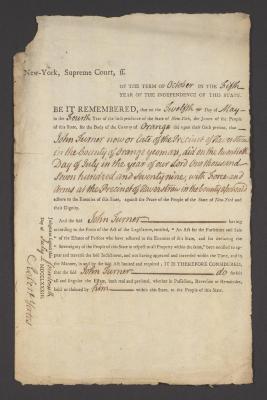 New-York, Supreme Court, ff.
OF THE TERM OF October IN THE Fifth
YEAR OF THE INDEPENDENCE OF THIS STATE.
BE IT REMEMBERED, that on the Twelfth Day of May
in the Fourth Year of the Independence of the State of New-York, the Jurors of the People
of this State, for the Body of the County of Orange did upon their Oath present, that
John Turner now or late of the Precinct of Haverstraw
in the County of Orange yeoman, did on the twentieth
Day of July in the year of our Lord One thousand
seven hundred and Seventy nine, with Force and
Arms at the Precinct of Haverstraw in the County aforesaid
adhere to the Enemies of this State, against the Peace of the People of the State of New-York and
their Dignity.
And the said John Turner having
according to the Form of the Act of the Legislature, entitled, "An Act for the Forfeiture and Sale
"of the Estates of Persons who have adhered to the Enemies of this State, and for declaring the
"Sovereignty of the People of this State in respect to all Property within the same," been notified to ap-
pear and traverse the said Indictment, and not having appeared and traversed within the Time, and in
the Manner, in and by the said Act limited and required; IT IS THEREFORE CONSIDERED,
that the said John Turner do forfeit
all and singular the Estate, both real and personal, whether in Possession, Reversion or Remainder,
held or claimed by him within this State, to the People of this State.
Day of July